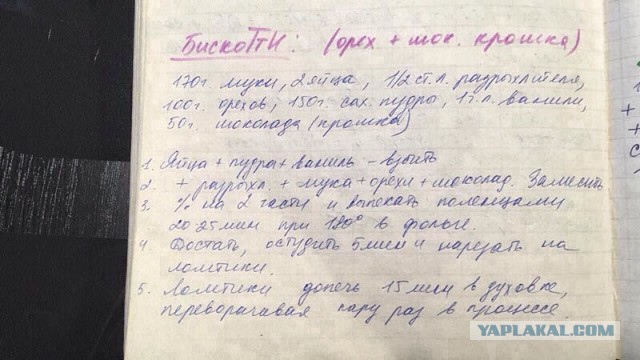 БискоТТи: (орех + шок. крошка)
170г. муки, 2 яйца, 1/2 ст.л. разрыхлителя,
100г. орехов, 150г. сах. пудры, 1 т.л. ванили,
50г. шоколада (крошка)
1. Яйца + пудра + ваниль - взбить
2. + разрыхл. + мука + орехи + шоколад. Замесить
3. % на 2 части и выпекать поленцами
20-25 мин при 180° в фольге.
4. Достать, остудить 5 мин и нарезать на
ломтики.
5. Ломтики допечь 15 мин в духовке,
переворачивая пару раз в процессе.
YAPLAKAL.COM